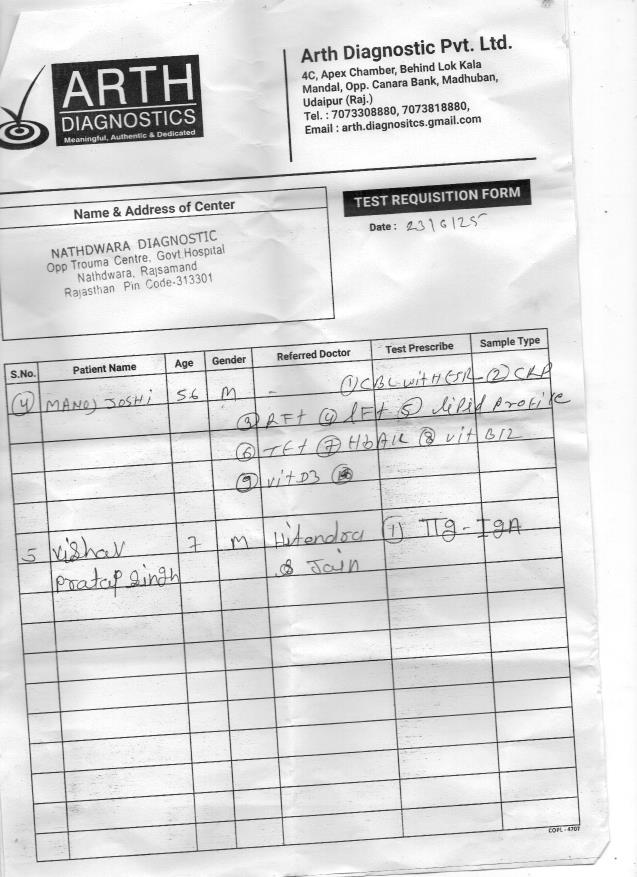 ARTH
DIAGNOSTICS
Meaningful, Authentic & Dedicated
Arth Diagnostic Pvt. Ltd.
4C, Apex Chamber, Behind Lok Kala
Mandal, Opp. Canara Bank, Madhuban,
Udaipur (Raj.)
Tel. : 7073308880, 7073818880,
Email : arth.diagnositcs.gmail.com
Name & Address of Center
NATHDWARA DIAGNOSTIC
Opp Trouma Centre, Govt.Hospital
Nathdwara, Rajsamand
Rajasthan Pin Code-313301
TEST REQUISITION FORM
Date : 23/6/25
S.No. Patient Name Age Gender Referred Doctor Test Prescribe Sample Type
4 MANOJ JOSHI 56 M - 1 CBC WITH ESR 2 CRP
3 RFt 4 LFt 5 lipid profile
6 TFt 7 HbA1c 8 vit B12
9 vit D3
5 Vishav 7 M Hitendra 1) TTg-IgA
Pratap Singh & Jain
COPL - 4707